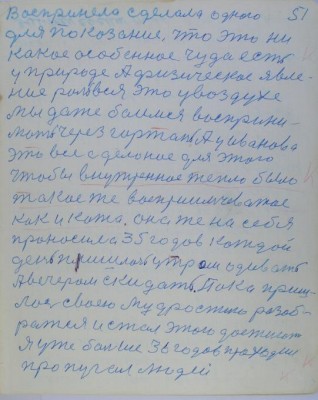 Восприняла сделала одного 51
для показание, что это ни
какое особенное чудо есть
у природе А физическое явле-
ние родовся это у воздухе
мы даже боимся восприни-
мать через гортань А у Иванова
это все сделоное для этого
чтобы внутренное тепло было
такое же восприимчеватое
как и кожа. она же на себя
проносила 35 годов каждой
день пришлось утром одивать
А вечером скидать Пока приш-
лось своею мудростью разоб-
ратся и стал этого достигат
Я уже больше 36 годов проходил
пропугал людей